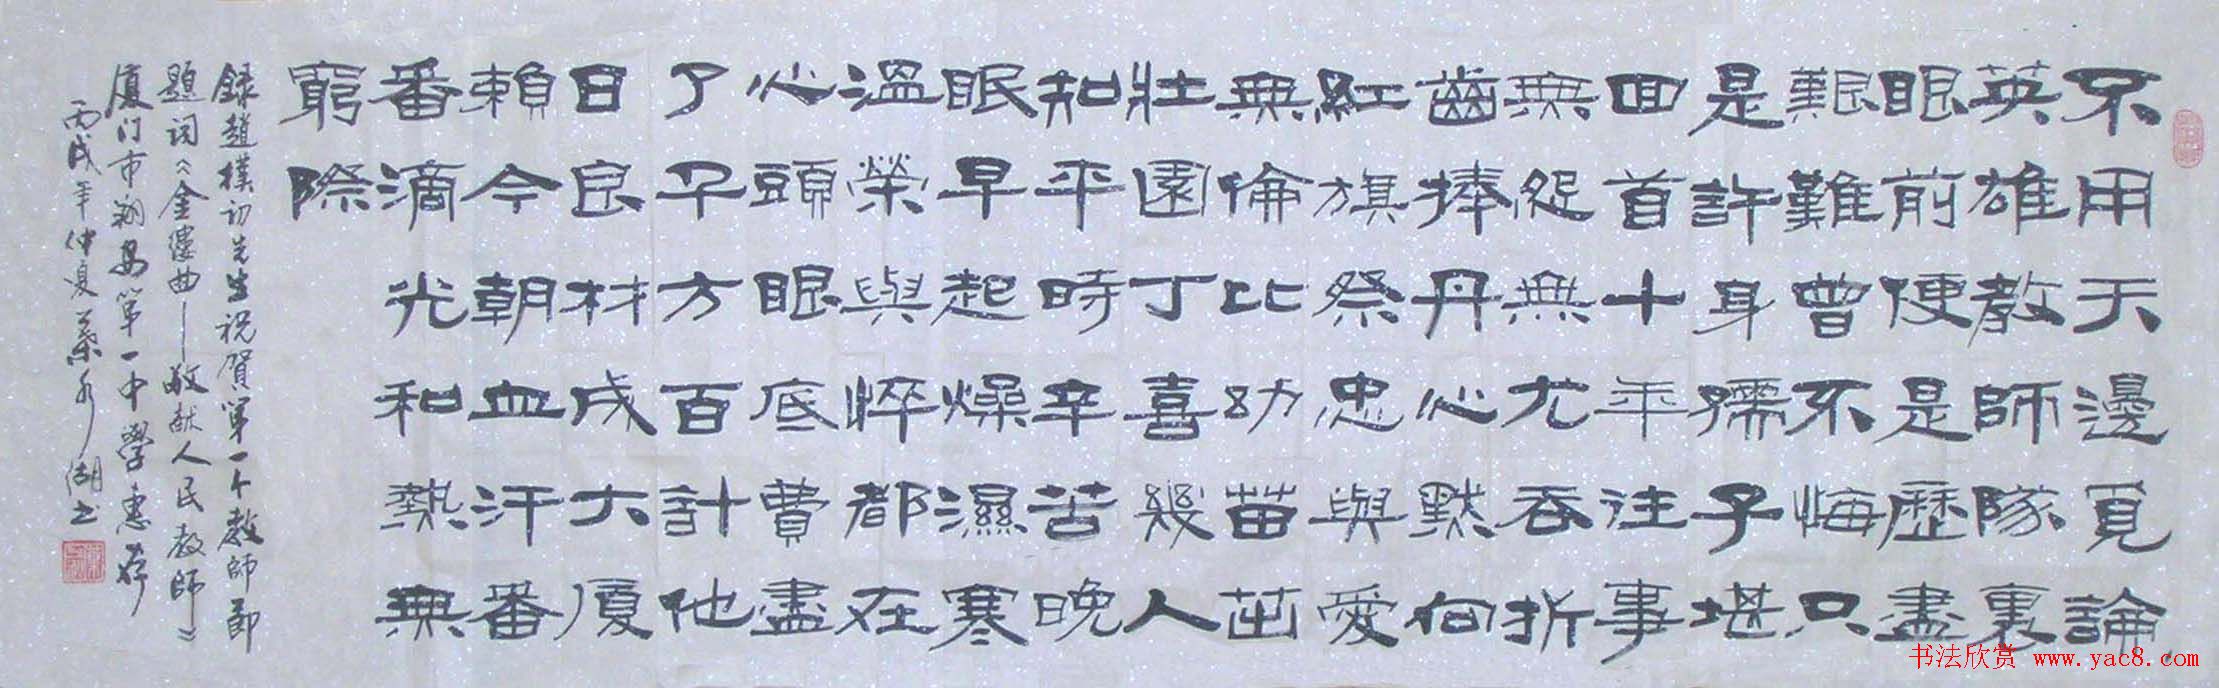 不用天邊覓論
英雄教師隊裏
眼前便是歷盡
艱難曾不悔只
是許身孺子堪
回首十年往事
無怨無尤吞折
齒捧丹心默向
紅旗祭忠與愛
無倫比幼苗茁
壯園丁喜幾人
知平時辛苦晚
眠早起燥濕寒
溫榮與悴都在
心頭眼底費盡
了千方百計他
日良材成大厦
賴今朝血汗番
番滴光和熱無
窮際
録趙樸初先生祝賀第一个教師節
題词《金縷曲—敬献人民教師》
厦门市翔安第一中學惠存
丙戌年仲夏蔡湖书
书法欣赏 www.yac8.com